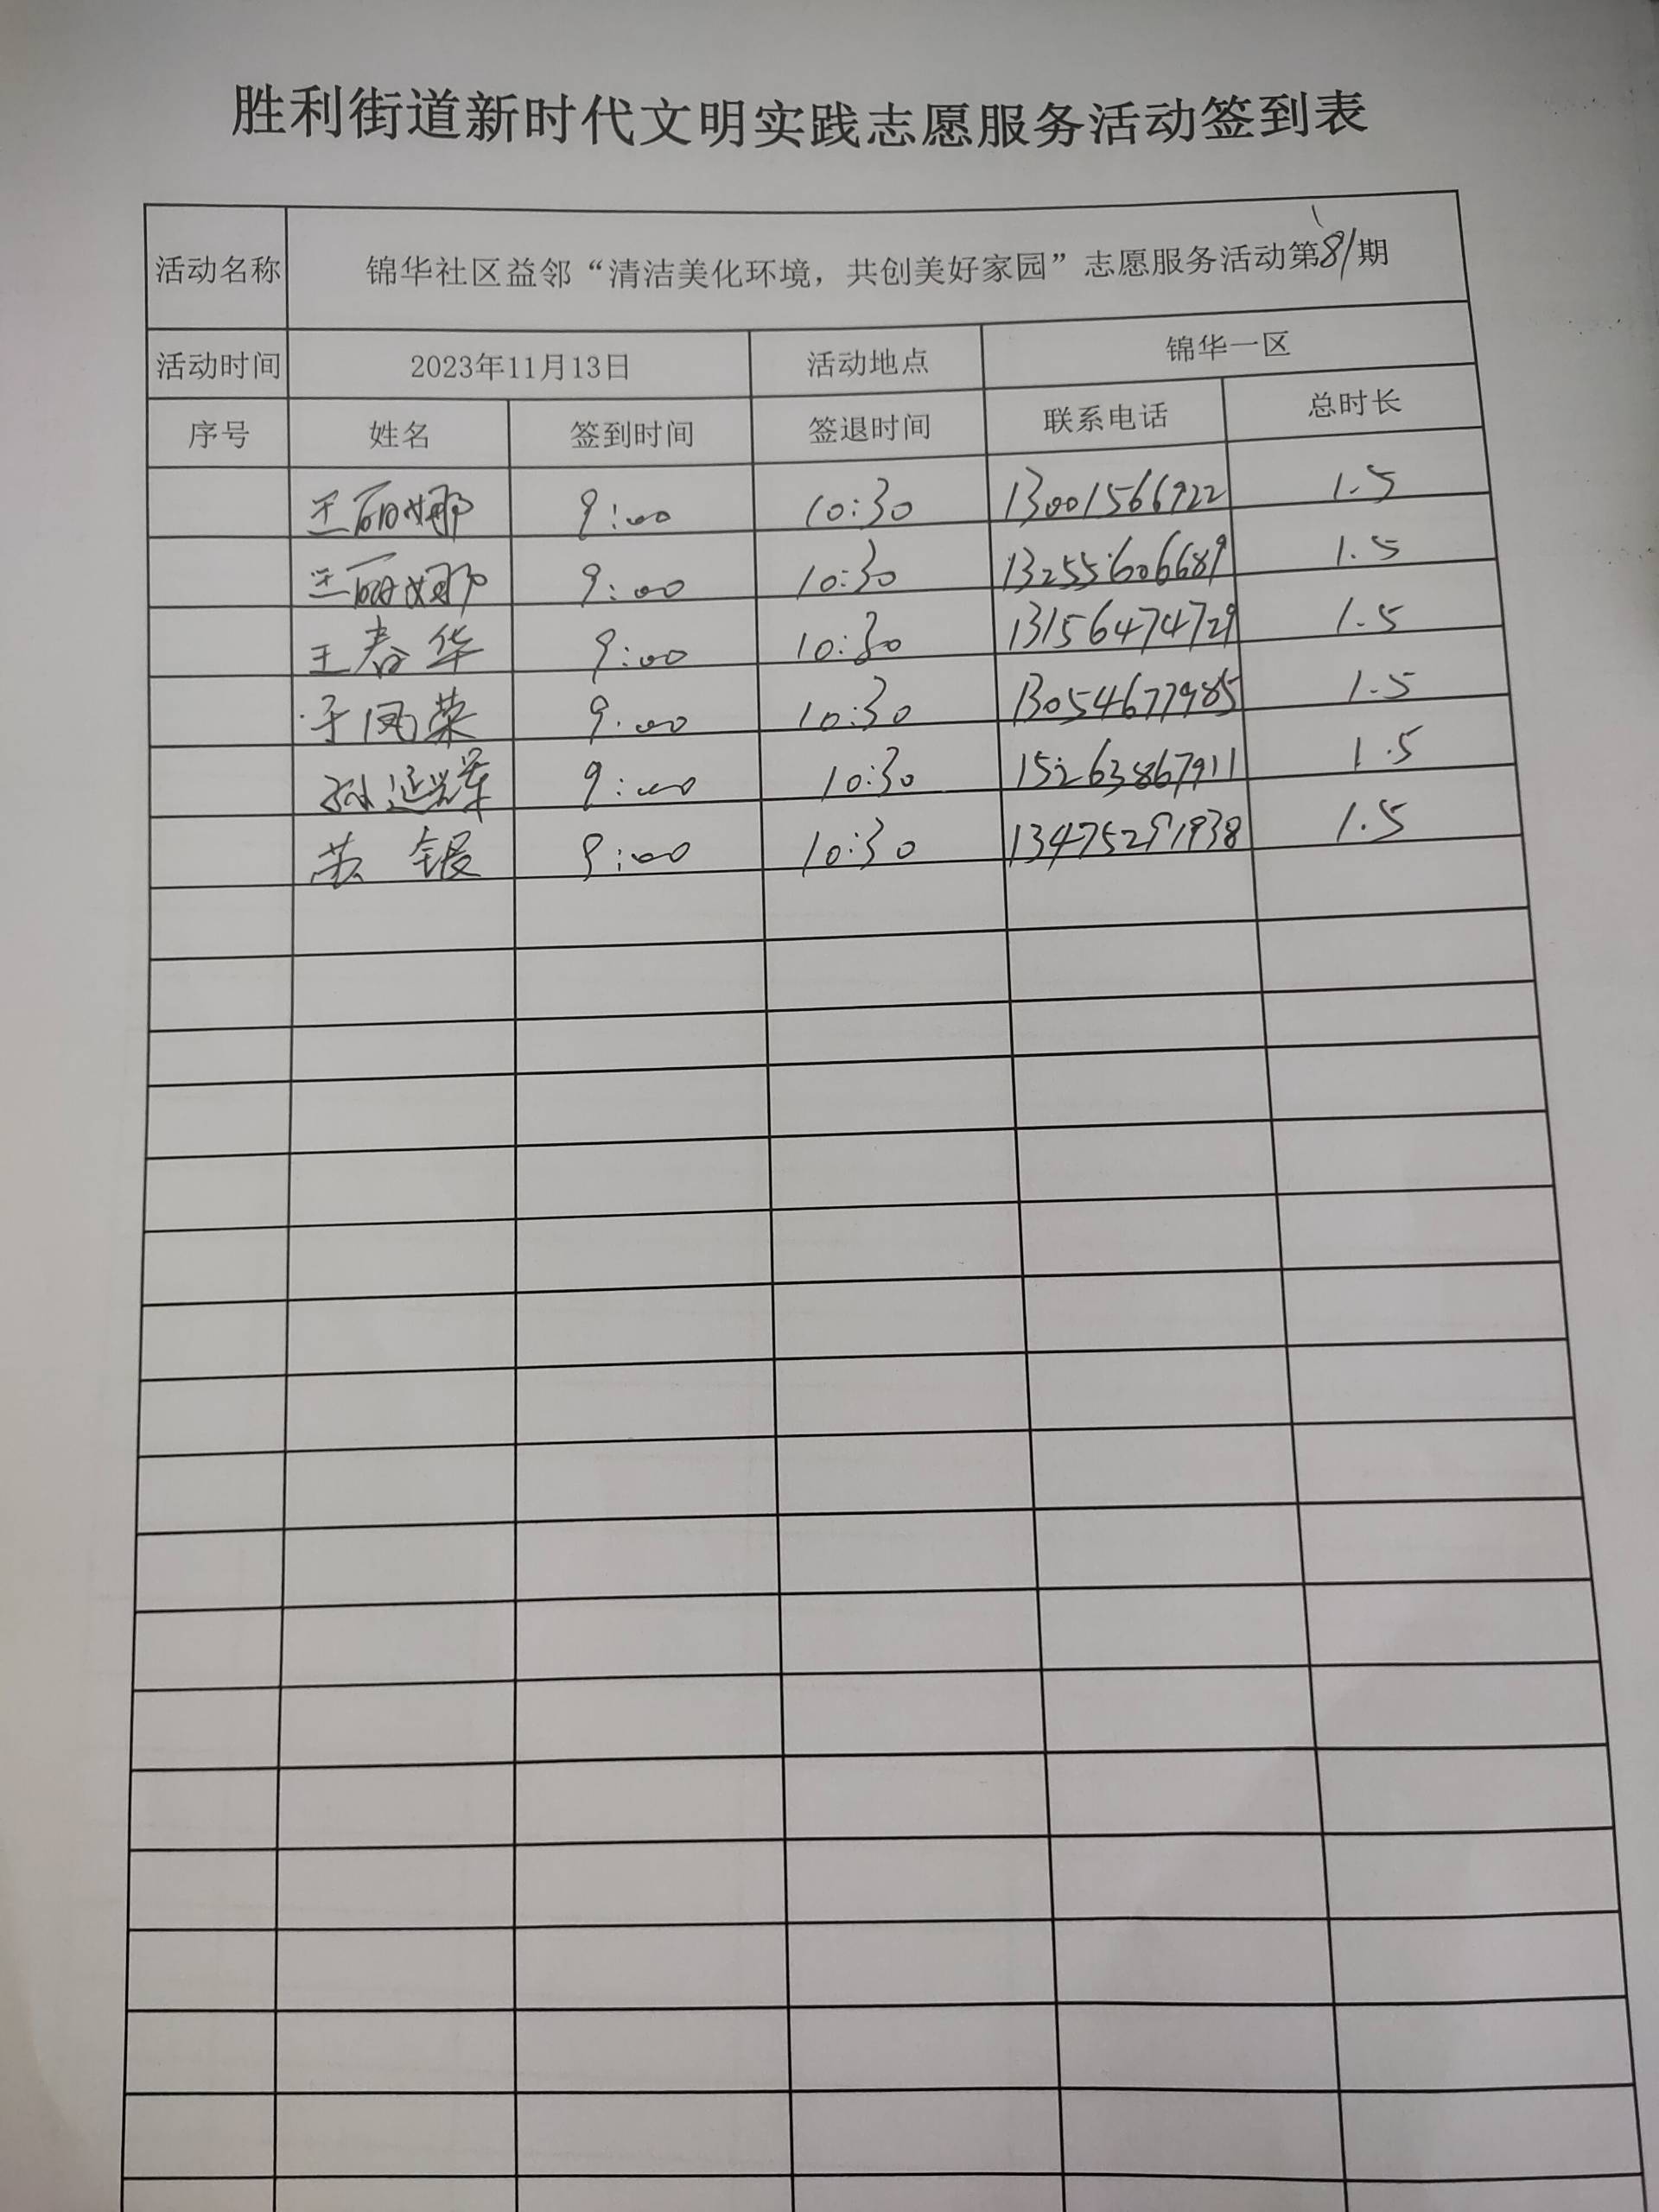 胜利街道新时代文明实践志愿服务活动签到表
活动名称 锦华社区益邻“清洁美化环境，共创美好家园”志愿服务活动第81期
活动时间 2023年11月13日 活动地点 锦华一区
序号 姓名 签到时间 签退时间 联系电话 总时长
王丽娜 9:00 10:30 13001566922 1.5
王丽娜 9:00 10:30 13255606689 1.5
王春华 9:00 10:30 13156474729 1.5
于凤荣 9:00 10:30 13054677985 1.5
孙延辉 9:00 10:30 15263867911 1.5
9:00 10:30 13475291938 1.5